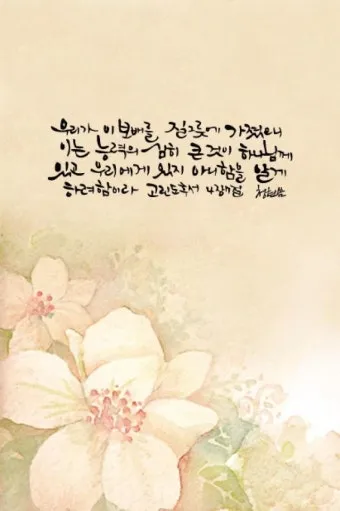 우리가 이 보배를 질그릇에 가졌으니
이는 능력의 심히 큰 것이 하나님께
있고 우리에게 있지 아니함을 알게
하려함이라 고린도후서 4장7절